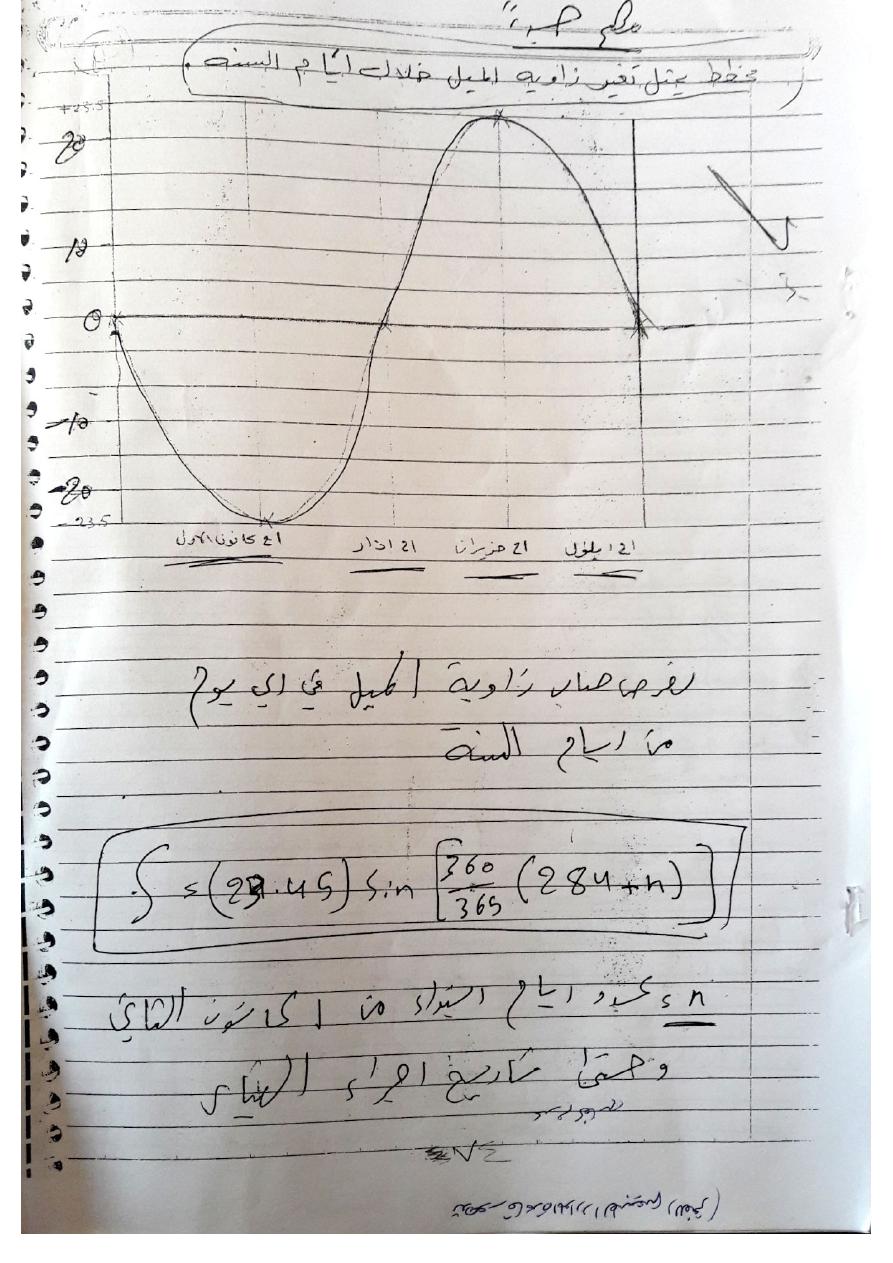 مهم جداً
مخطط يمثل تغير زاوية الميل خلال أيام السنة.
+23.5
20
10
0
-10
-20
-23.5
21 كانون الاول
21 اذار
21 حزيران
21 ايلول
لغرض حساب زاوية الميل في اي يوم
من ايام السنة
δ = (23.45) sin [360/365 (284+n)]
n = عدد ايام ابتداء من 1 كانون الثاني
وحتى تاريخ اجراء القياس